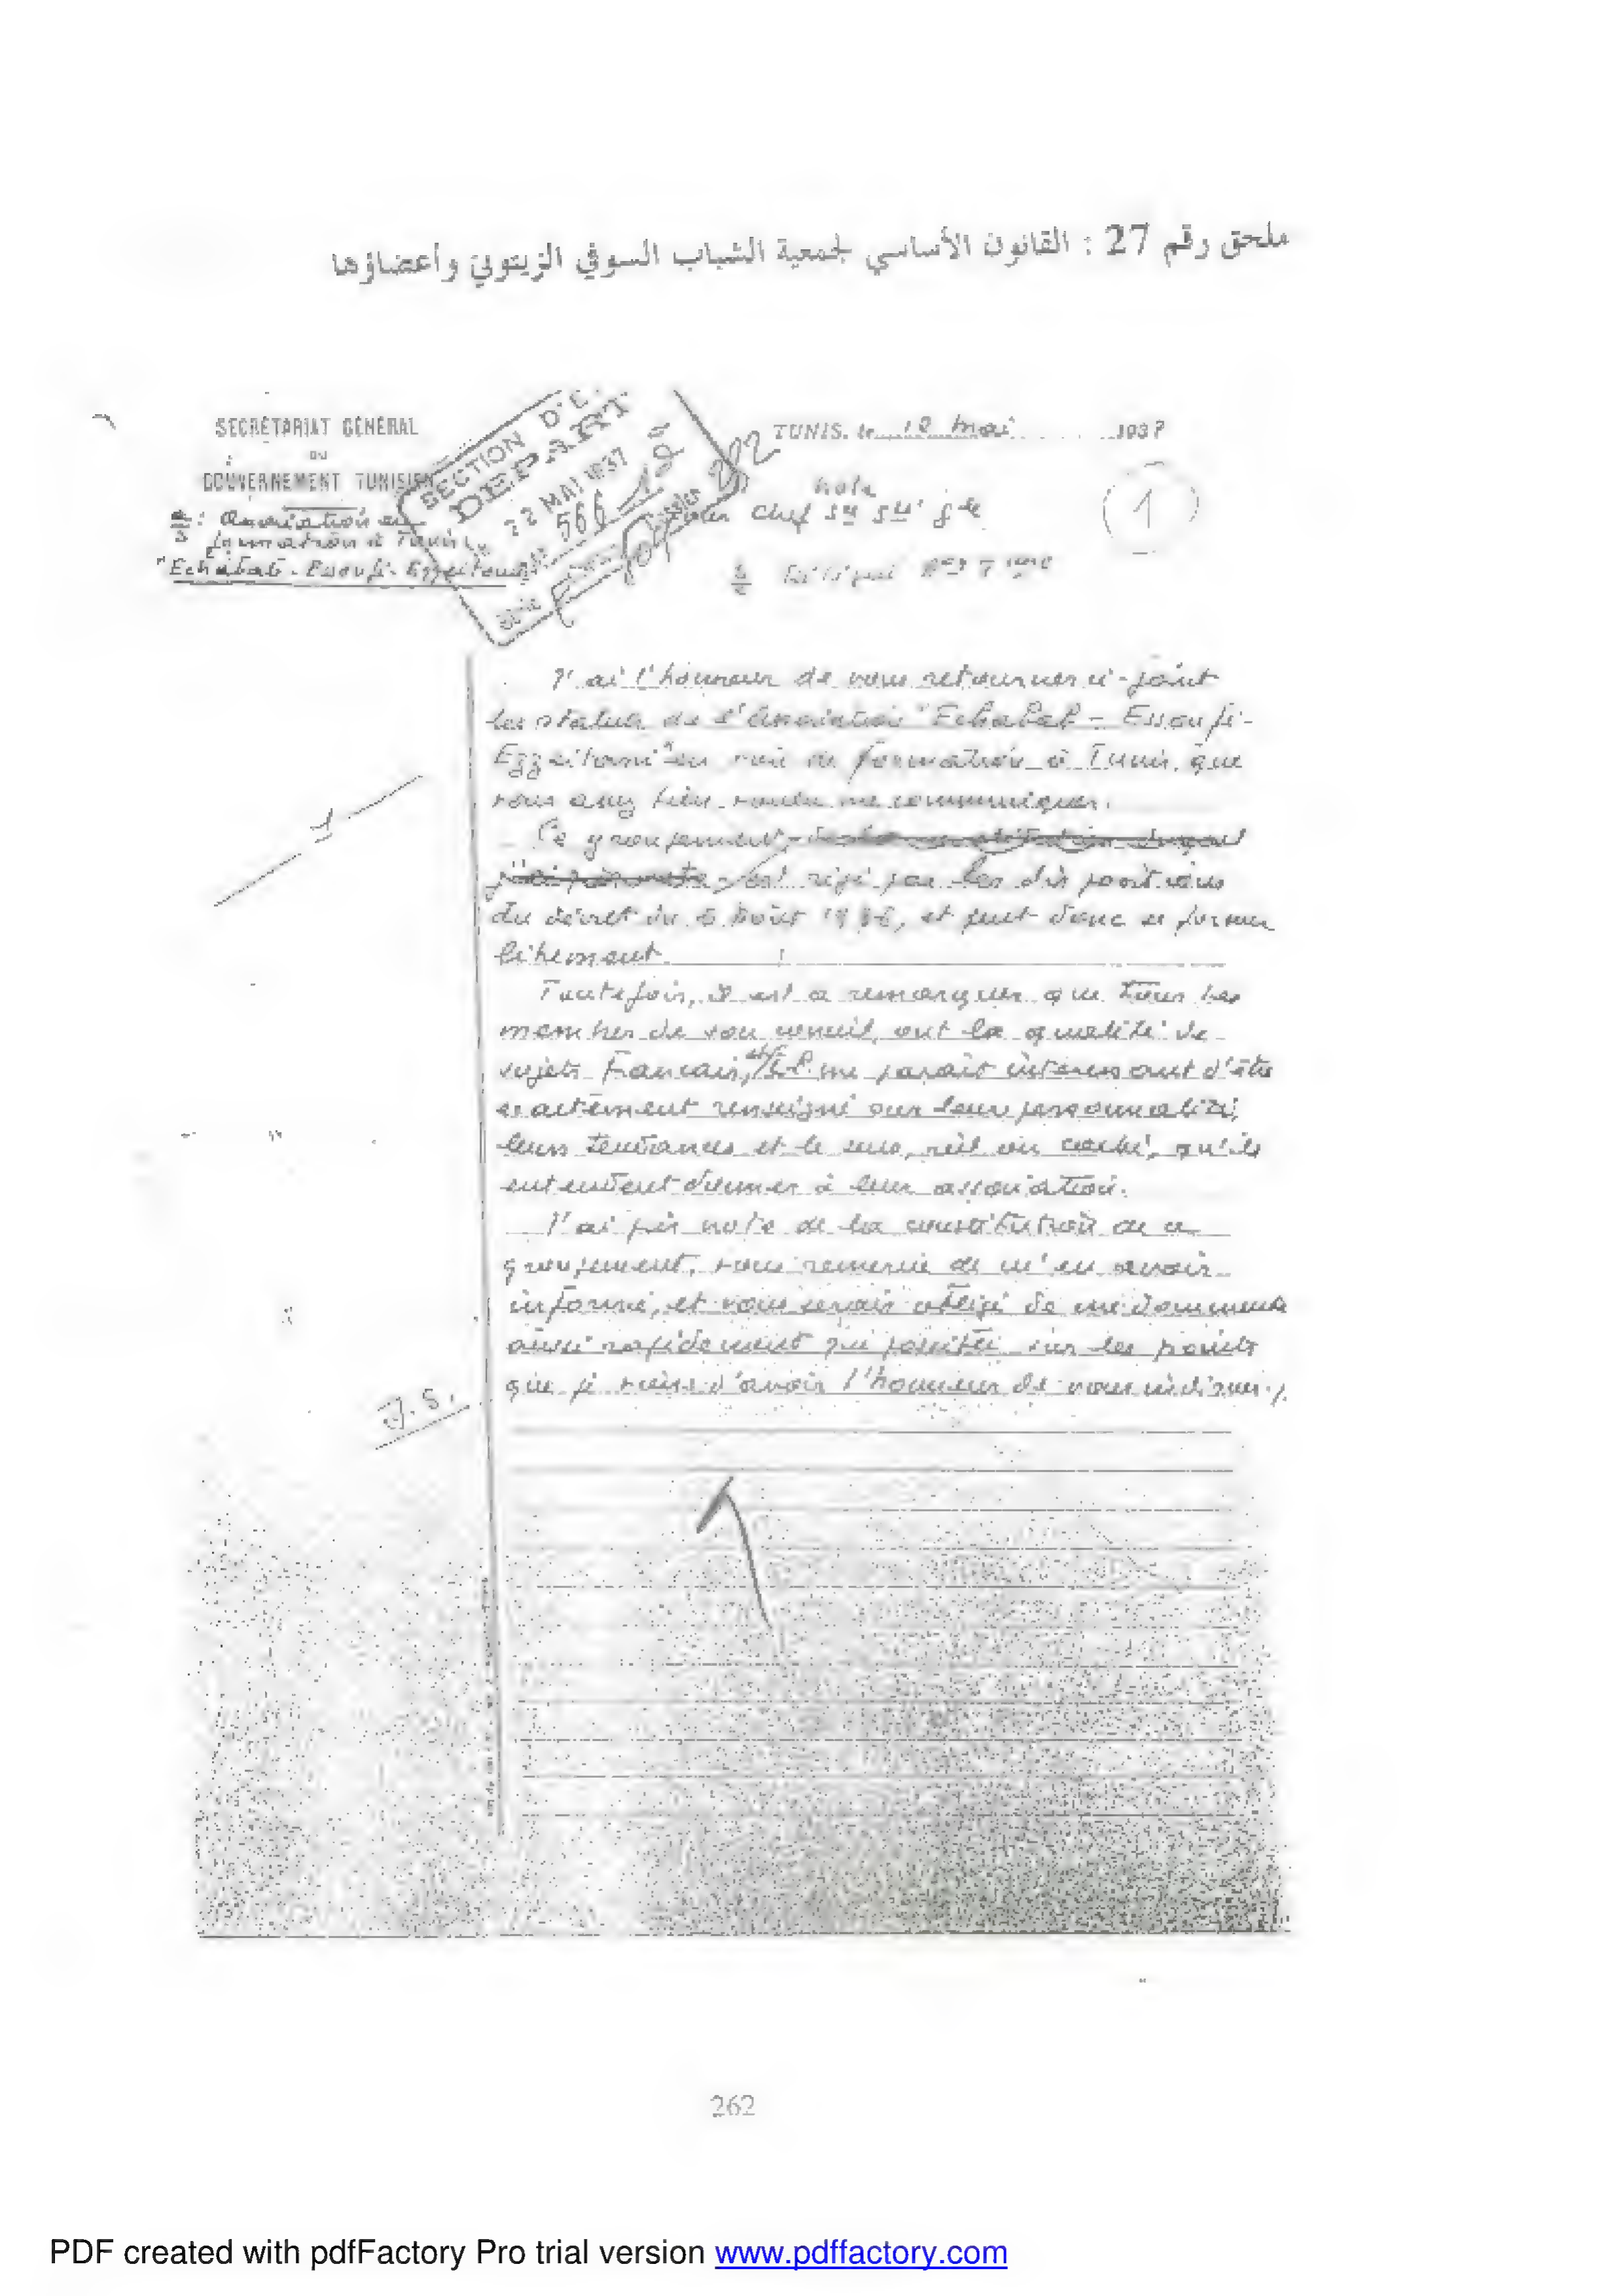 ملحق رقم 27 : القانون الأساسي لجمعية الشباب السوفي الزيتوني وأعضاؤها
SECRÉTARIAT GÉNÉRAL
DU
GOUVERNEMENT TUNISIEN
a/s : Association en
formation à Tunis
"Echabab-Essoufi-Ezzeitouni"
SECTION D'E.
DEPART
22 MAI 1937
566
Série
TUNIS, le 12 mai 1937
Note
Pour Chef
1
J'ai l'honneur de vous retourner ci-joint
les statuts de l'Association "Echabab - Essoufi-
Ezzeitouni" en voie de formation à Tunis, que
vous avez bien voulu me communiquer.
Ce groupement,
est régi par les dispositions
du décret du 6 Août 1936, et peut donc se former
librement.
Toutefois, il est à remarquer que tous les
membres de son conseil, ont la qualité de
sujets Français, et il me paraît intéressant d'être
exactement renseigné sur leur personnalité,
leurs tendances et le sens, réel ou caché, qu'ils
entendent donner à leur association.
J'ai pris note de la constitution de ce
groupement, vous remercie de m'en avoir
informé, et vous serais obligé de me
aussi rapidement que possible sur les points
que je viens d'avoir l'honneur de vous indiquer ./.
J.S.
262
PDF created with pdfFactory Pro trial version www.pdffactory.com